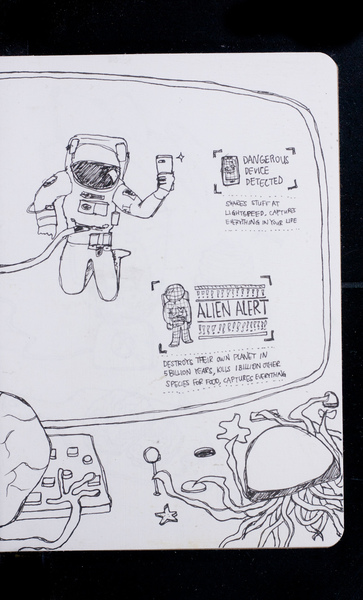 DANGEROUS
DEVICE
DETECTED
SHARES STUFF AT
LIGHTSPEED, CAPTURES
EVERYTHING IN YOUR LIFE
ALIEN ALERT
DESTROYS THEIR OWN PLANET IN
5 BILLION YEARS, KILLS 1 BILLION OTHER
SPECIES FOR FOOD, CAPTURES EVERYTHING